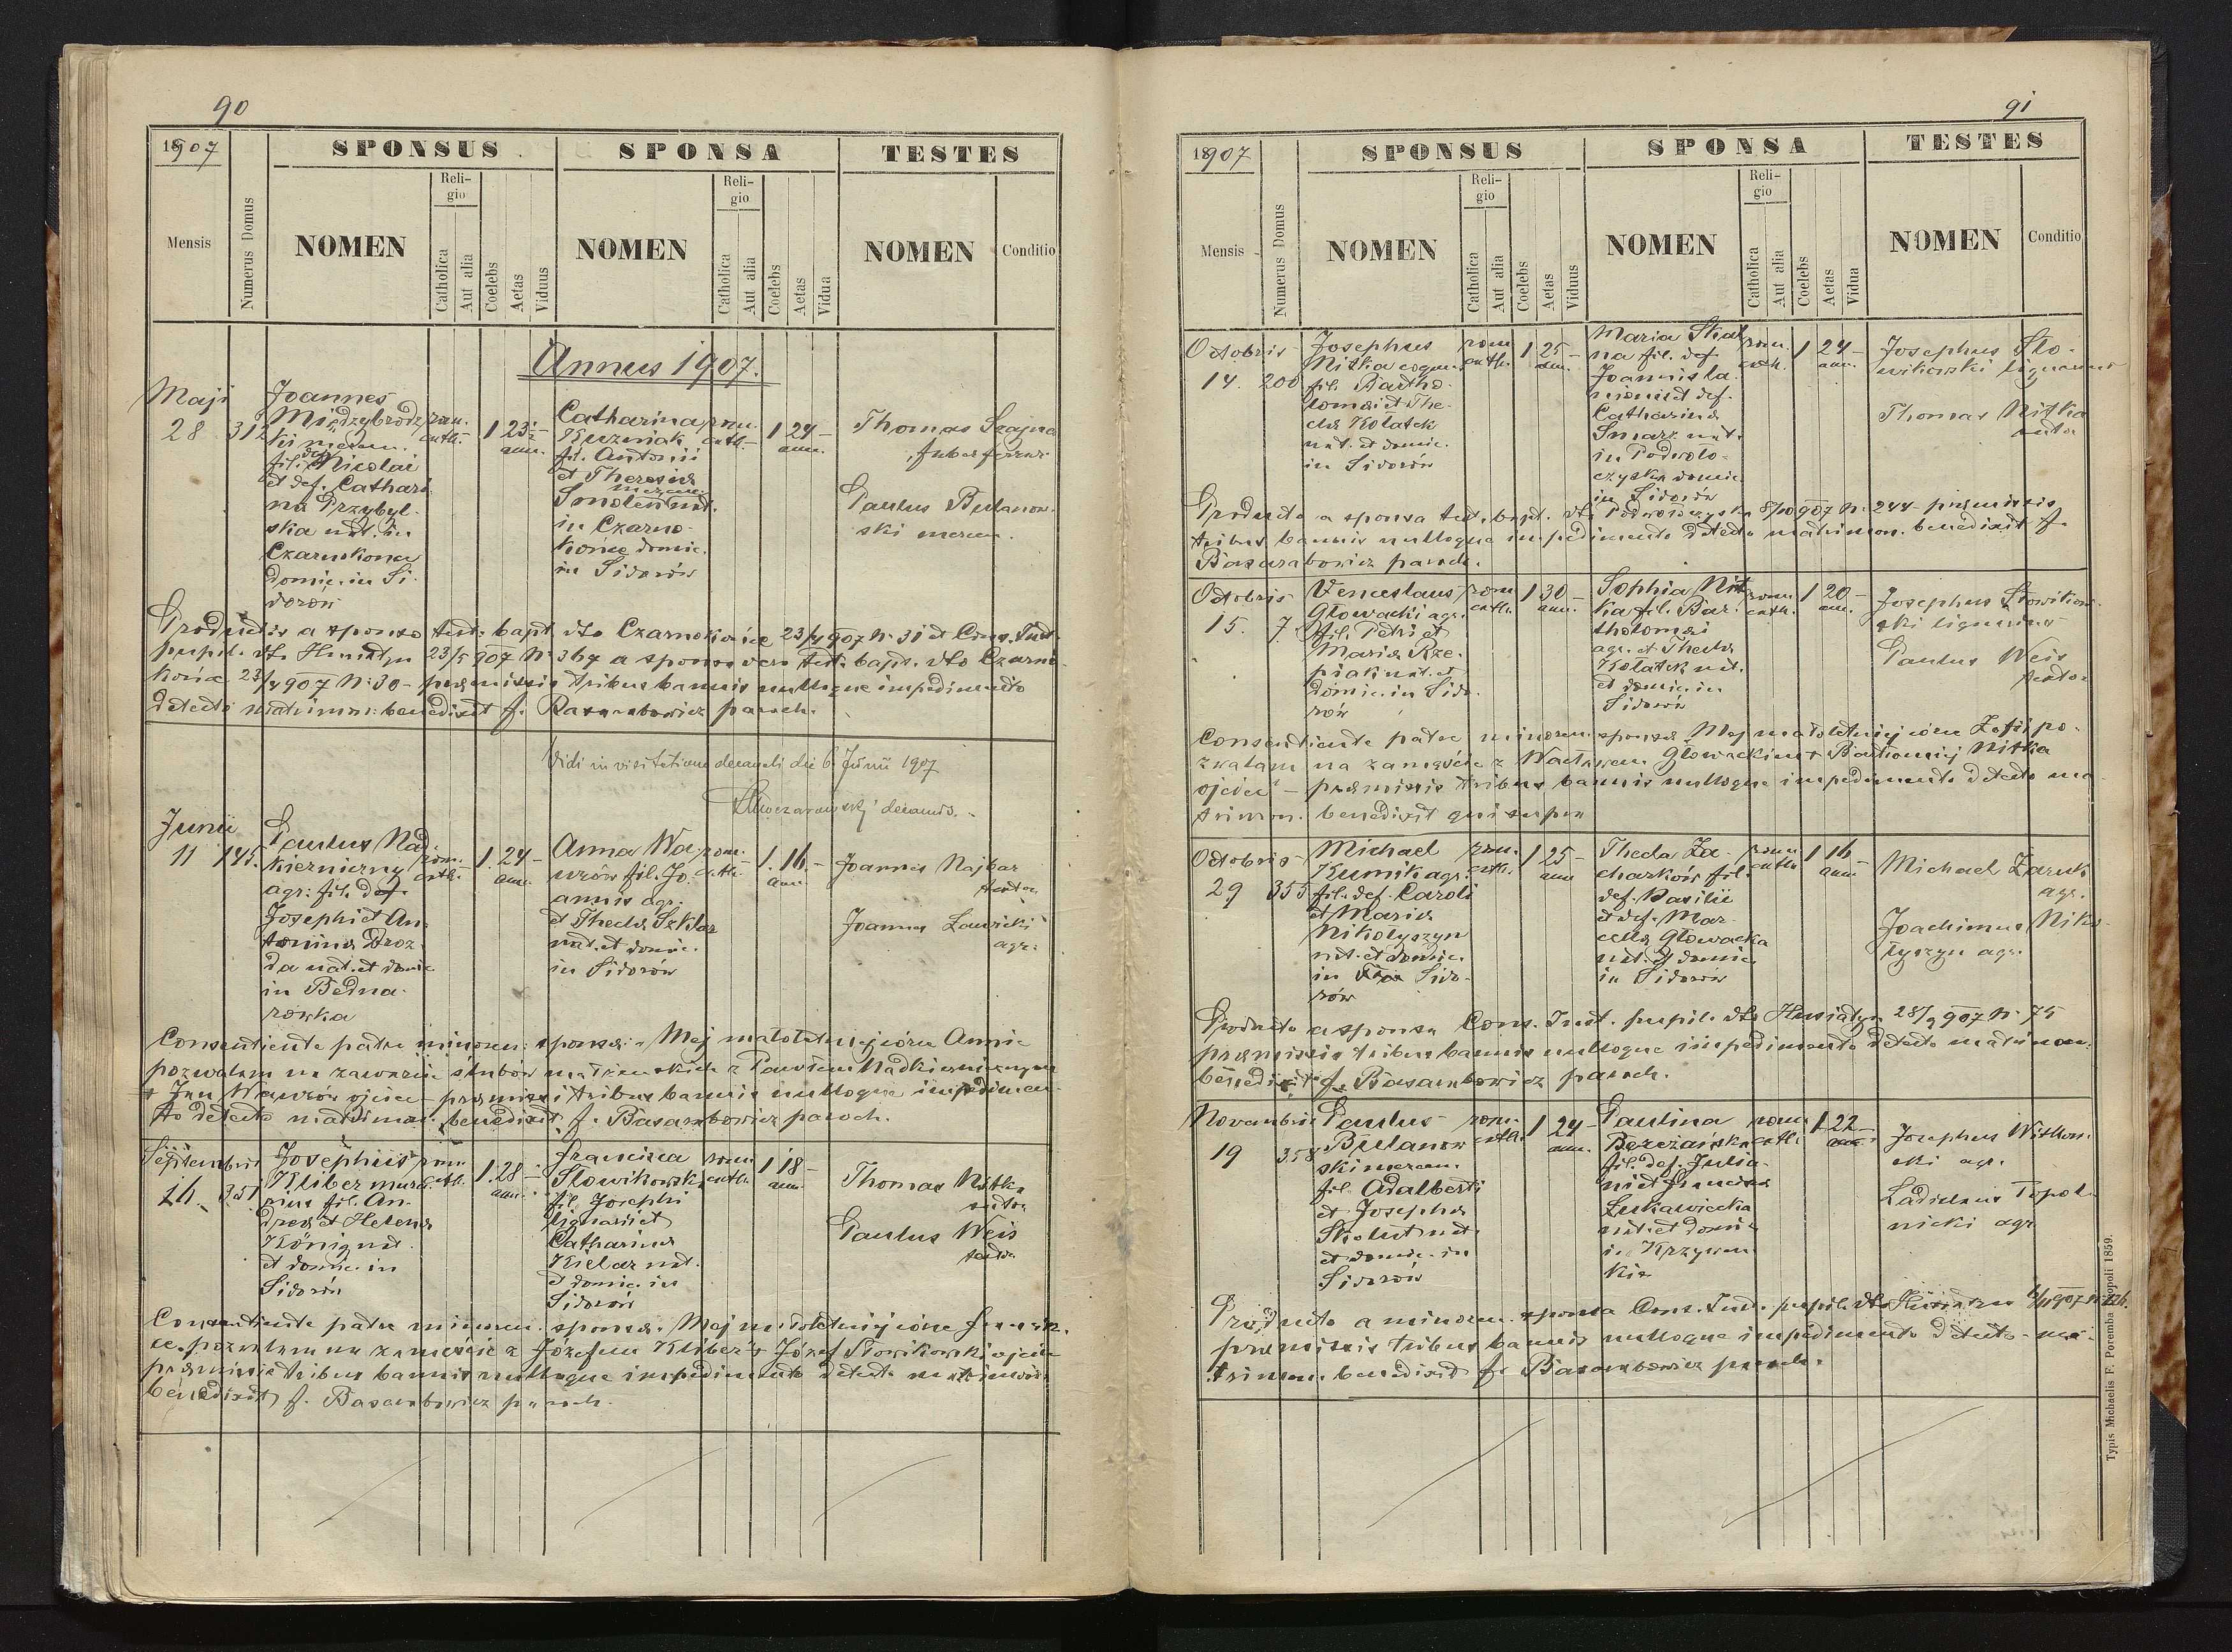 90
1907
SPONSUS
SPONSA
TESTES
Mensis
Numerus Domus
NOMEN
Religio
Catholica
Aut alia
Coelebs
Aetas
Viduus
NOMEN
Religio
Catholica
Aut alia
Coelebs
Aetas
Vidua
NOMEN
Conditio
Annus 1907.
Maji
28 312
Joannes
Międzybrodz
ki mercen.
fil. def. Nicolai
et def. Cathari
na Przybyl-
ska nat. in
Czarnokona
domic. in Si-
dorów
rom. cath. 1 23½ ann.
Catharina
Kuzniak
fil. Antonii
et Theresiæ
Smolen nat.
in Czarno-
końce domic.
in Sidorów
rom. cath. 1 24 ann.
Thomas Szajna
faber ferrar.
Paulus Bulanow-
ski mercen.
Productis a sponso test. bapt. dto Czarnokońce 23/4 907 N. 31 et Cons. Iud.
pupil. dto Husiatyn 23/5 907 N. 367 a sponsa vero test. bapt. dto Czarno-
końce 23/4 907 N. 30 - præmissis tribus bannis nulloque impedimento
detecto matrimon. benedixit f. Basarabowicz paroch.
Vidi in visitatione decanali die 6. Junii 1907
decanus.
Junii
11 145.
Paulus Nad-
kierniczny
agr. fil. def.
Josephi et An-
toninæ Droz-
da nat. et domic.
in Bedna-
rówka
rom. cath. 1. 24 ann.
Anna Wa-
wrów fil. Jo-
annis agr.
et Theclæ Szklar
nat. et domic.
in Sidorów
rom. cath. 1. 16. ann.
Joannes Najbar
Joannes Zawicki
agr.
Consentiente patre minoren. sponsæ: Mej małoletniej córce Annie
pozwalam na zawarcie ślubów małżeńskich z Pawłem Nadkiernicznym
+ Jan Wawrów ojciec - præmissis tribus bannis nulloque impedimen-
to detecto matrimon. benedixit f. Basarabowicz paroch.
Septembris
16. 351
Josephus
Kliber mura-
rius fil. An-
dreæ et Helenæ
König nat.
et domic. in
Sidorów
rom. cath. 1. 28 ann.
Francisca
Słowikowska
fil. Josephi
lignarii et
Catharinæ
Kielar nat.
et domic. in
Sidorów
rom. cath. 1 18 ann.
Thomas Nitka
sutor
Paulus Weis
Consentiente patre minoren. sponsæ. Mej małoletniej córce Francisz-
ce pozwalam na zamęście z Józefem Kliber + Józef Słowikowski ojciec
præmissis tribus bannis nulloque impedimento detecto matrimon.
benedixit f. Basarabowicz paroch.
91
1907
SPONSUS
SPONSA
TESTES
Mensis
Numerus Domus
NOMEN
Religio
Catholica
Aut alia
Coelebs
Aetas
Viduus
NOMEN
Religio
Catholica
Aut alia
Coelebs
Aetas
Vidua
NOMEN
Conditio
Octobris
14. 200
Josephus
Nitka
fil. Bartho-
lomæi et The-
clæ Kolatek
nat. et domic.
in Sidorów
rom. cath. 1 25 ann.
Maria Skal
na fil. def.
Joannis
et def.
Catharinæ
Smarz nat.
in Podwolo-
czyska domic.
in Sidorów
rom. cath. 1 24 ann.
Josephus Sło-
wikowski lignarius
Thomas Nitka
sutor
Producto a sponsa test. bapt. dto Podwołoczyska 8/10 907 N. 244 - præmissis
tribus bannis nulloque impedimento detecto matrimon. benedixit f.
Basarabowicz paroch.
Octobris
15. 7
Venceslaus
Głowacki agr.
fil. Petri et
Mariæ Rze-
piak nat. et
domic. in Sido-
rów
rom. cath. 1 30 ann.
Sophia Nit
ka fil. Bar-
tholomæi
agr. et Theclæ
Kolatek nat.
et domic. in
Sidorów
rom. cath. 1 20 ann.
Josephus Słowikow-
ski lignarius
Paulus Weis
Consentiente patre minoren. sponsæ. Mej małoletniej córce Zofii po-
zwalam na zamęście z Wacławem Głowackim + Bartłomiej Nitka
ojciec - præmissis tribus bannis nulloque impedimento detecto ma-
trimon. benedixit qui supra
Octobris
29 355
Michael
Kumik agr.
fil. def. Caroli
et Mariæ
Nikołyszyn
nat. et domic.
in Sido-
rów
rom. cath. 1 25 ann.
Thecla Za-
charków fil.
def. Basilii
et def. Mar-
cellæ Głowacka
nat. et domic.
in Sidorów
rom. cath. 1 16 ann.
Michael Zaruk
agr.
Joachimus Niko-
łyszyn agr.
Producto a sponsa Cons. Iud. pupil. dto Husiatyn 28/9 907 N. 75
præmissis tribus bannis nulloque impedimento detecto matrimon.
benedixit f. Basarabowicz paroch.
Novembris
19 358
Paulus
Bulanow
ski mercen.
fil. Adalberti
et Josephæ
Skolut nat.
et domic. in
Sidorów
rom. cath. 1 24 ann.
Paulina
Berezańska
fil. def. Julia-
ni et Franciscæ
Łukawiecka
nat. et domic.
in Krzywen-
kie
rom. cath. 1 22 ann.
Josephus Witkow-
ski agr.
Ladislaus Topol-
nicki agr.
Producto a minoren. sponsa Cons. Iud. pupil. dto Husiatyn
præmissis tribus bannis nulloque impedimento detecto ma-
trimon. benedixit f. Basarabowicz paroch.
Typis Michaelis F. Poremba Leopoli 1859.